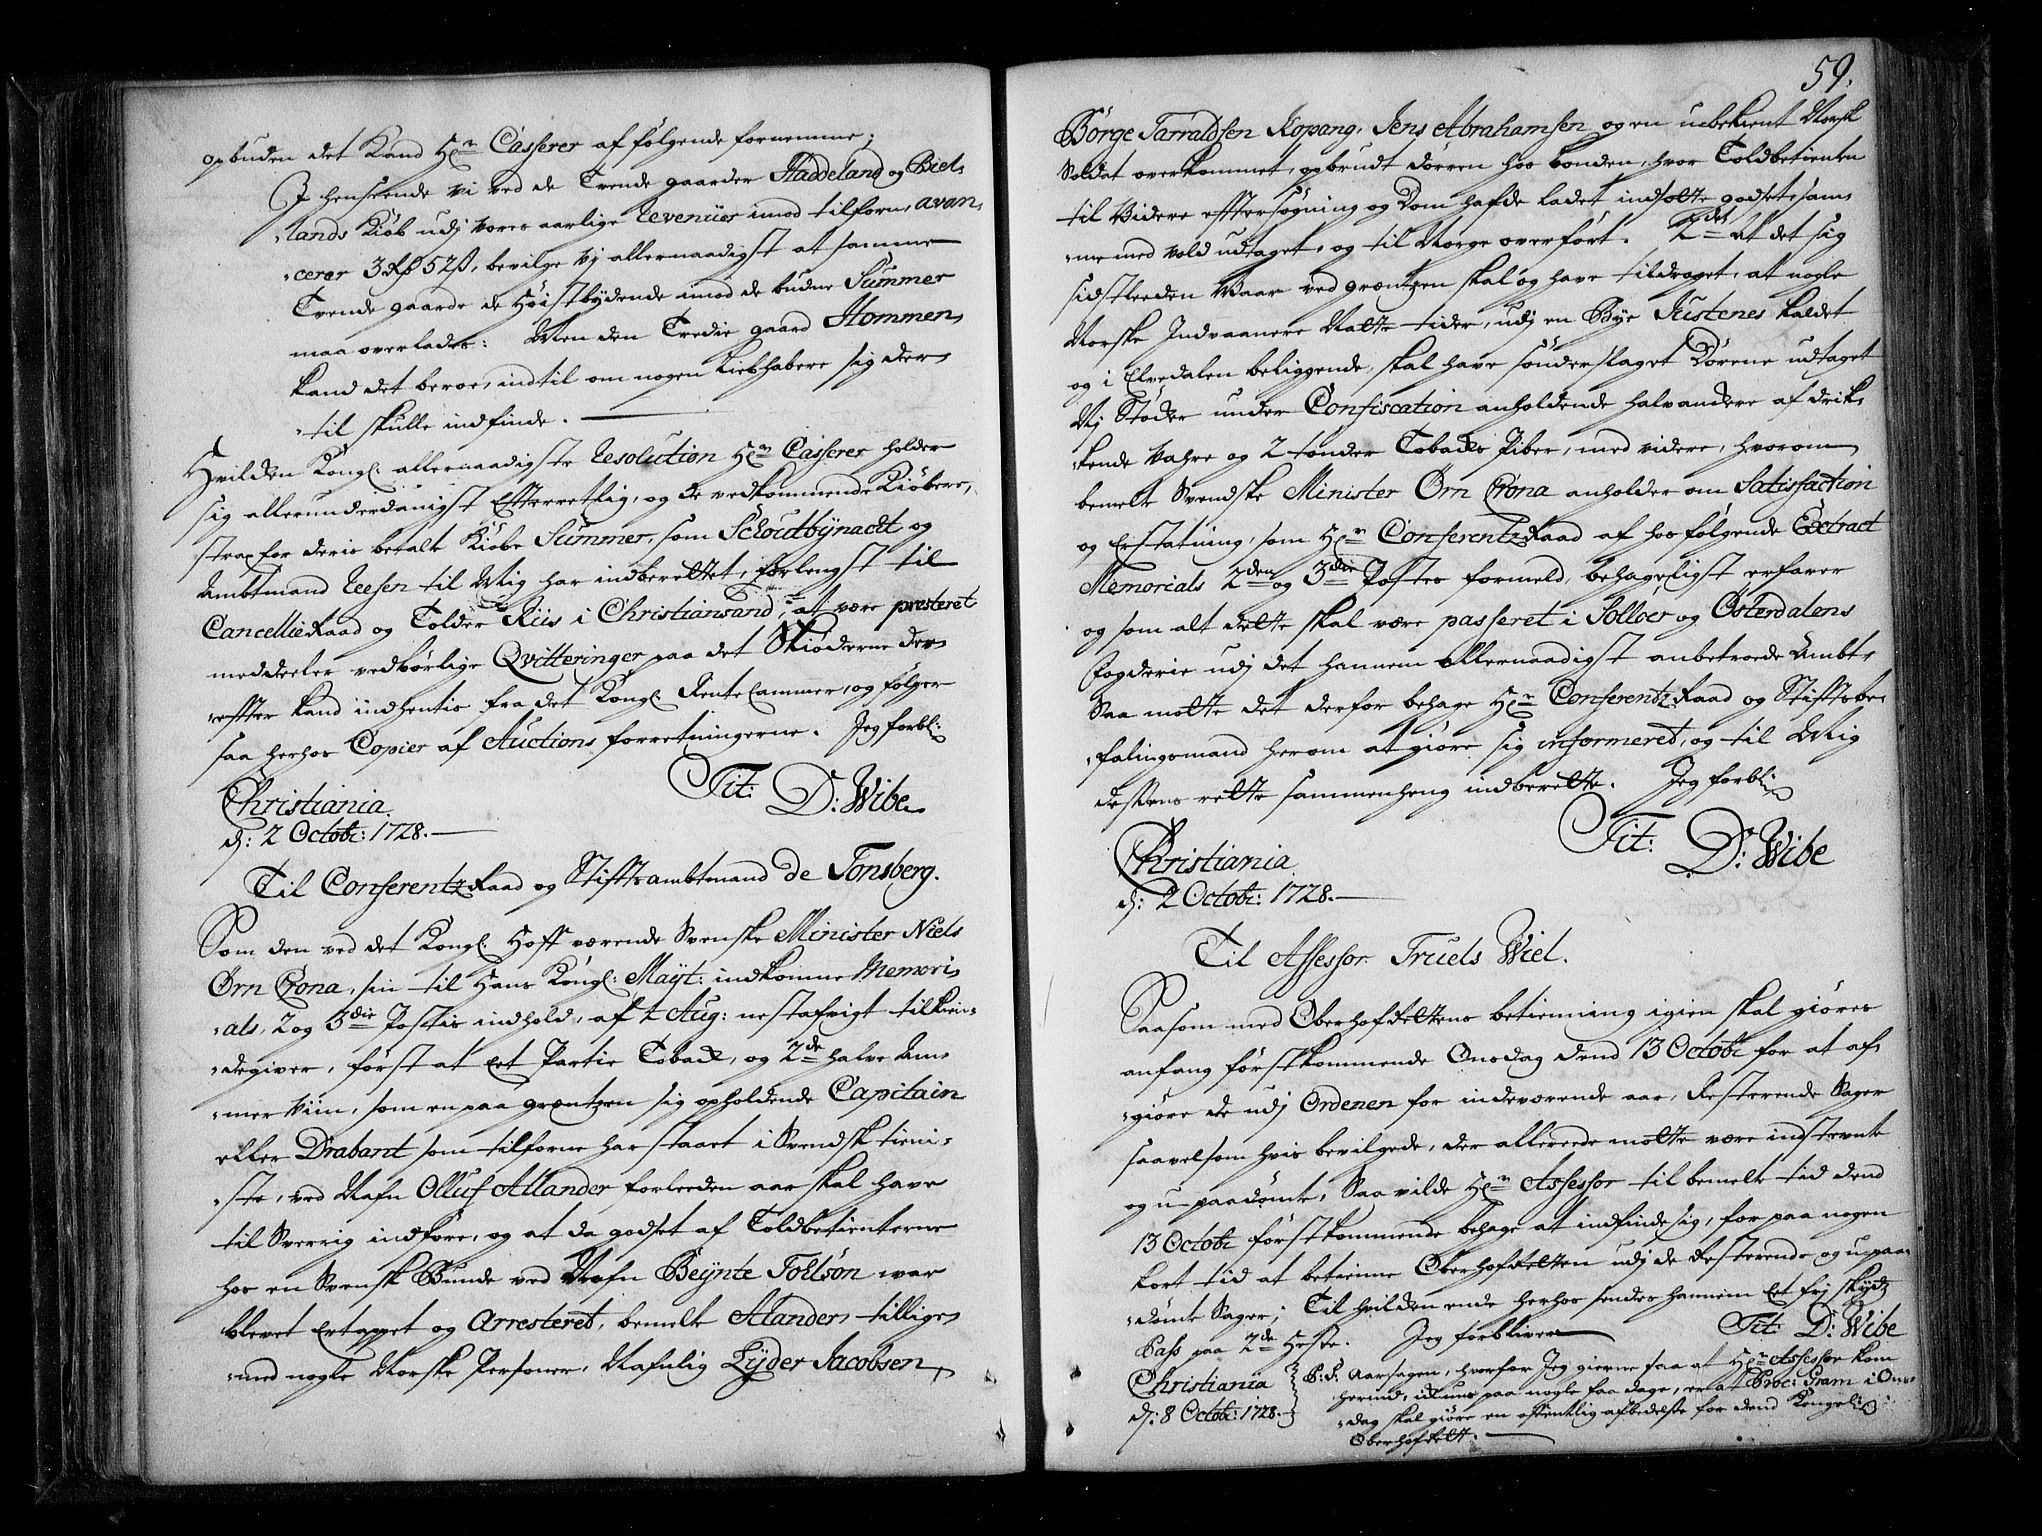 opbuden det Kand Hr. Casserer af følgende fornemme;
J henseende vi ved de Tvende gaarder Haddeland og Biel-
lands Kiøb udj vores aarlige Revenüer imod tilforn, avan-
cerer 3 Rd 52 ß, bevilge Vj allernaadigst at samme
Tvende gaarde de Høistbÿdende imod de budne Summer
maa overlades: Men den Tredie gaard Hommen,
kand det beroe, indtil om nogen Liebhabere sig der-
til skulle indfinde.
Hvilden Kongl: allernaadigste Resolution Hr. Casserer holder
sig allerunderdanigst Efterretlig, og de vedkommende Kiøbere,
strax for deris betalte Kiøbe Summer, som Schoutbÿnacht og
Ambtmand Reesen til Mig har indberettet, forlengst til
CancellieRaad og Tolder Riis i Christiansand, at være presteret
meddeeler vedbørlige Qvitteringer paa det Skiøderne der-
efter kand indhentis fra det Kongl: Rente Cammer, og følger
saa herhos Copier af Auctions forretningerne. Jeg forbl:
Tit: D: Wibe
Christiania
d: 2 Octobr: 1728.
Til ConferentzRaad og Stiftsambtmand de Tonsberg.
Som den ved det Kongl: Hoff værende Svenske Minister Niels
Örn Crona, sin til Hans Kongl: Mayt: indkomne Memori-
als, 2 og 3die Postis indhold, af Aug: nestafvigt tilkien-
degiver, først at Eet Partie Toback, og 2de halve Am-
mer Viin, som en paa grentzen sig opholdende Capitain
eller Drabant som tilforne har staaet i Svensk tieni-
ste, ved Nafn Olluf Allander forleeden aar skal have
til Sverrig indføre, og at da godset af Toldbetienterne
hos en Svensk Bunde ved Nafn Beÿnte Tolsön war
blevet Ertappet og Arresteret, bemelte Alander, tillige-
med nogle Norske Personer, Nafnlig Lÿder Jacobsen,
59.
Börge Tarraldsen Kopang, Jens Abrahamsen og en ubekient Norsk
Soldat overkommet, opbrudt dörren hos bonden, hvor Toldbetienten
til Videre efftersögning og Dom hafde ladet indsætte godset, sam-
me med Vold udtaget, og til Norge overfört. 2det At det sig
sidstleeden Waar ved grentzen skal og have tildraget, at nogle
Norske Indvaanere Natte tider, udj en Bye Sustenes kaldet
og i Elvedalen beliggende, skal have sönderslaget Dörrene udtaget
Nj Stöder under Confiscation anholdende halvandere af drik-
kende Vahre og 2 tönder Tobacks Piber, med videre, hvorom
bemelte Svendske Minister Örn Crona anholder om Satisfaction
og Erstatning, som Hr. ConferentzRaad af hosfölgende Extract
Memorials 2den og 3die Postes formeld, behageligst erfarer
og som alt dette skal være passeret i Solloer og Österdalens
Fogderie udj det hannem allernaadigst anbetroede Ambt,
Saa motte det derfor behage Hr. ConferentzRaad og Stiftsbe-
falingsmand herom at giöre sig informeret, og til Mig
dessens rette sammenheng indberette. Jeg forbli
Tit: D: Wibe
Christiania
d: 2 Octobr: 1728.
Til Assessor Truels Wiel.
Saasom med Oberhofrettens betienning igien skal giöres
anfang förstkommende Onsdag dend 13 Octobr for at af-
giöre de udj Ordenen for indeværende aar, Resterende Sager
saavelsom hvis bevilgede, der allereede motte være indstevnte
og u-paadömte, Saa vilde Hr. Assessor til bemelte tid dend
13 Octobr förstkommende behage at indfinde sig, for paa nogen
kort tid at betienne Oberhofretten udj de Resterende og upaa-
dömte Sager; Til hvilden ende herhos sendes hannem Et frj skÿdz
Pass paa 2de Heste. Jeg forbliver
Tit: D: Wibe
Christiania
d: 8 Octobr: 1728.
P: S: Aarsagen, hvorfor Jeg gierne saa at Hr. Assessor kom
herind, ikkuns paa nogle faa dage, er at Proc: Gram i Ons-
dag skal giöre en offentlig afbedelse for dend Kongel:
Oberhofrett.